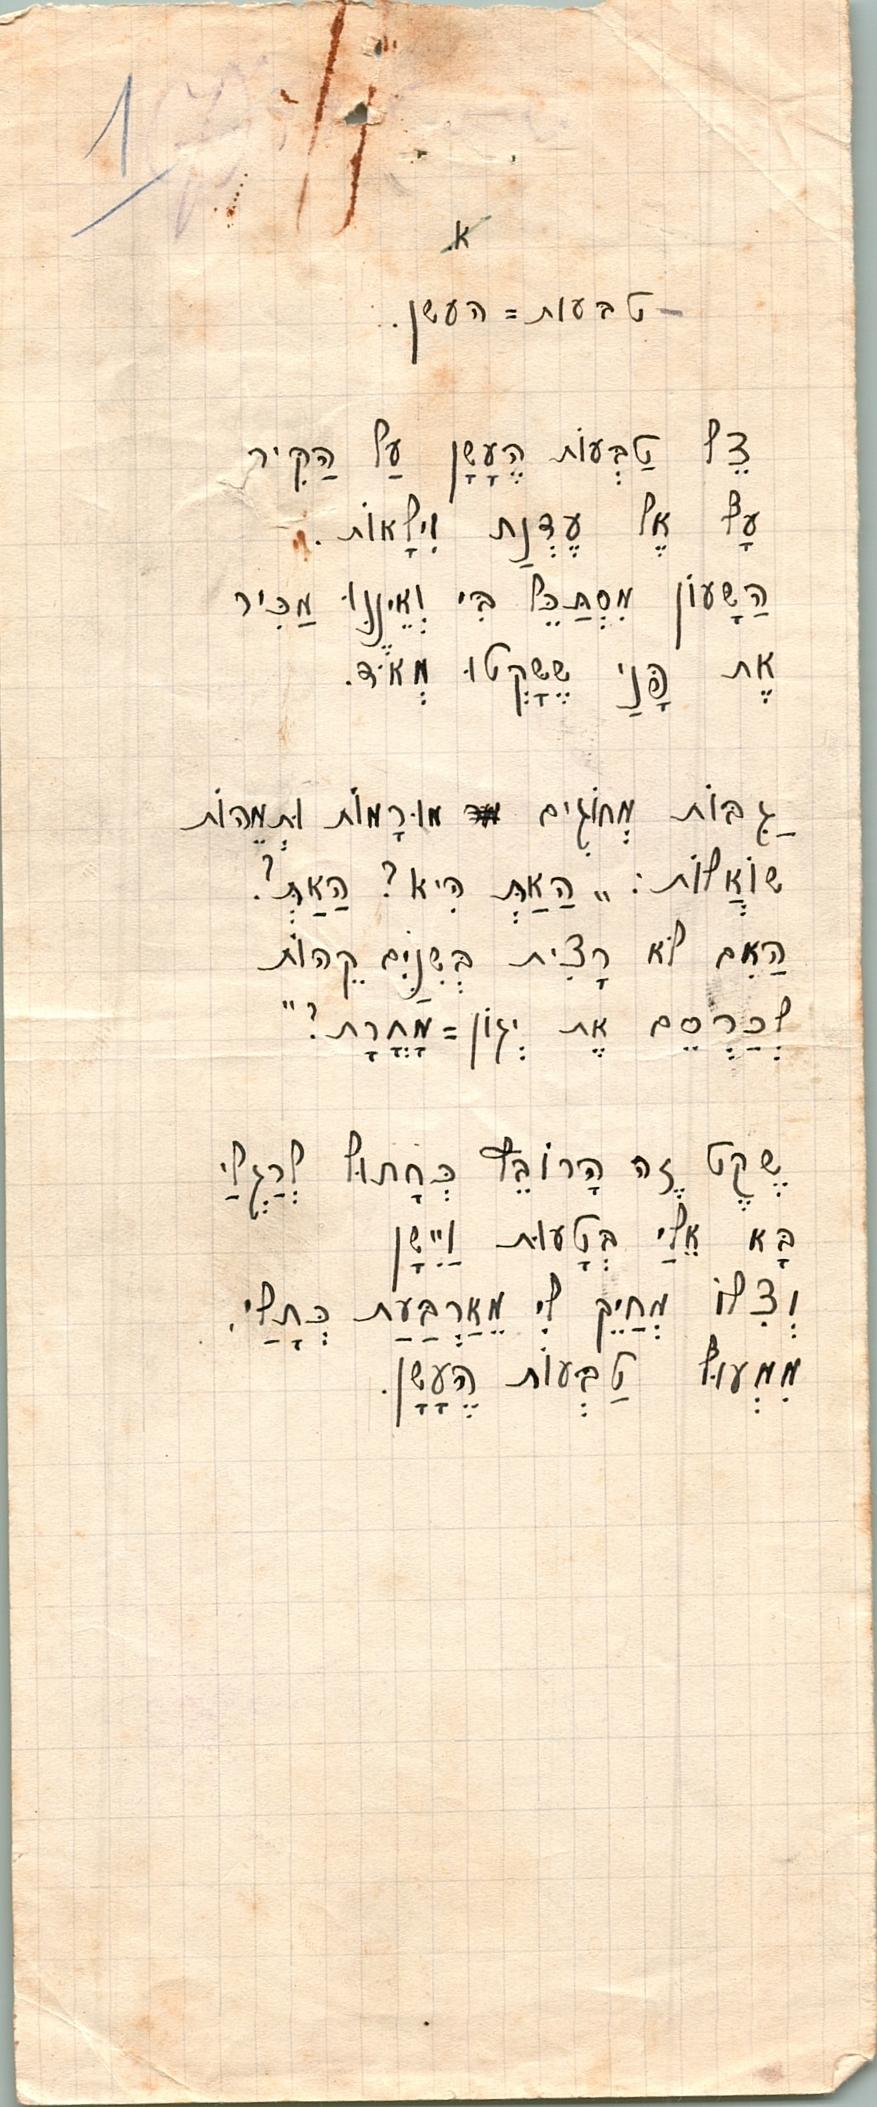 1
א
טבעות = העשן.
צֵל טַבְּעוֹת הֶעָשָׁן עַל הַקִּיר
עָט אֶל עֶדְנַת וִילָאוֹת.
הַשָּׁעוֹן מִסְתַּכֵּל בִּי וְאֵינֶנּוּ מַכִּיר
אֶת פָּנַי שֶׁשָּׁקְטוּ מְאֹד.
גַּבּוֹת מְחוֹגִים מוּרָמוֹת וּתְמֵהוֹת
שׁוֹאֲלוֹת: „הַאַתְּ הִיא? הַאַתְּ?
הַאִם לֹא רָצִית בְּשִׁנַּיִם קֵהוֹת
לְכַרְסֵם אֶת יְגוֹן = מָחֳרָת?"
שֶׁקֶט זֶה הָרוֹבֵץ כְּחָתוּל לְרַגְלַי
בָּא אֵלַי בְּטָעוּת וַיִּישָׁן
וְצִלּוֹ מְחַיֵּךְ לִי מֵאַרְבַּעַת כְּתָלַי,
מִמְּעוּל טַבְּעוֹת הֶעָשָׁן.